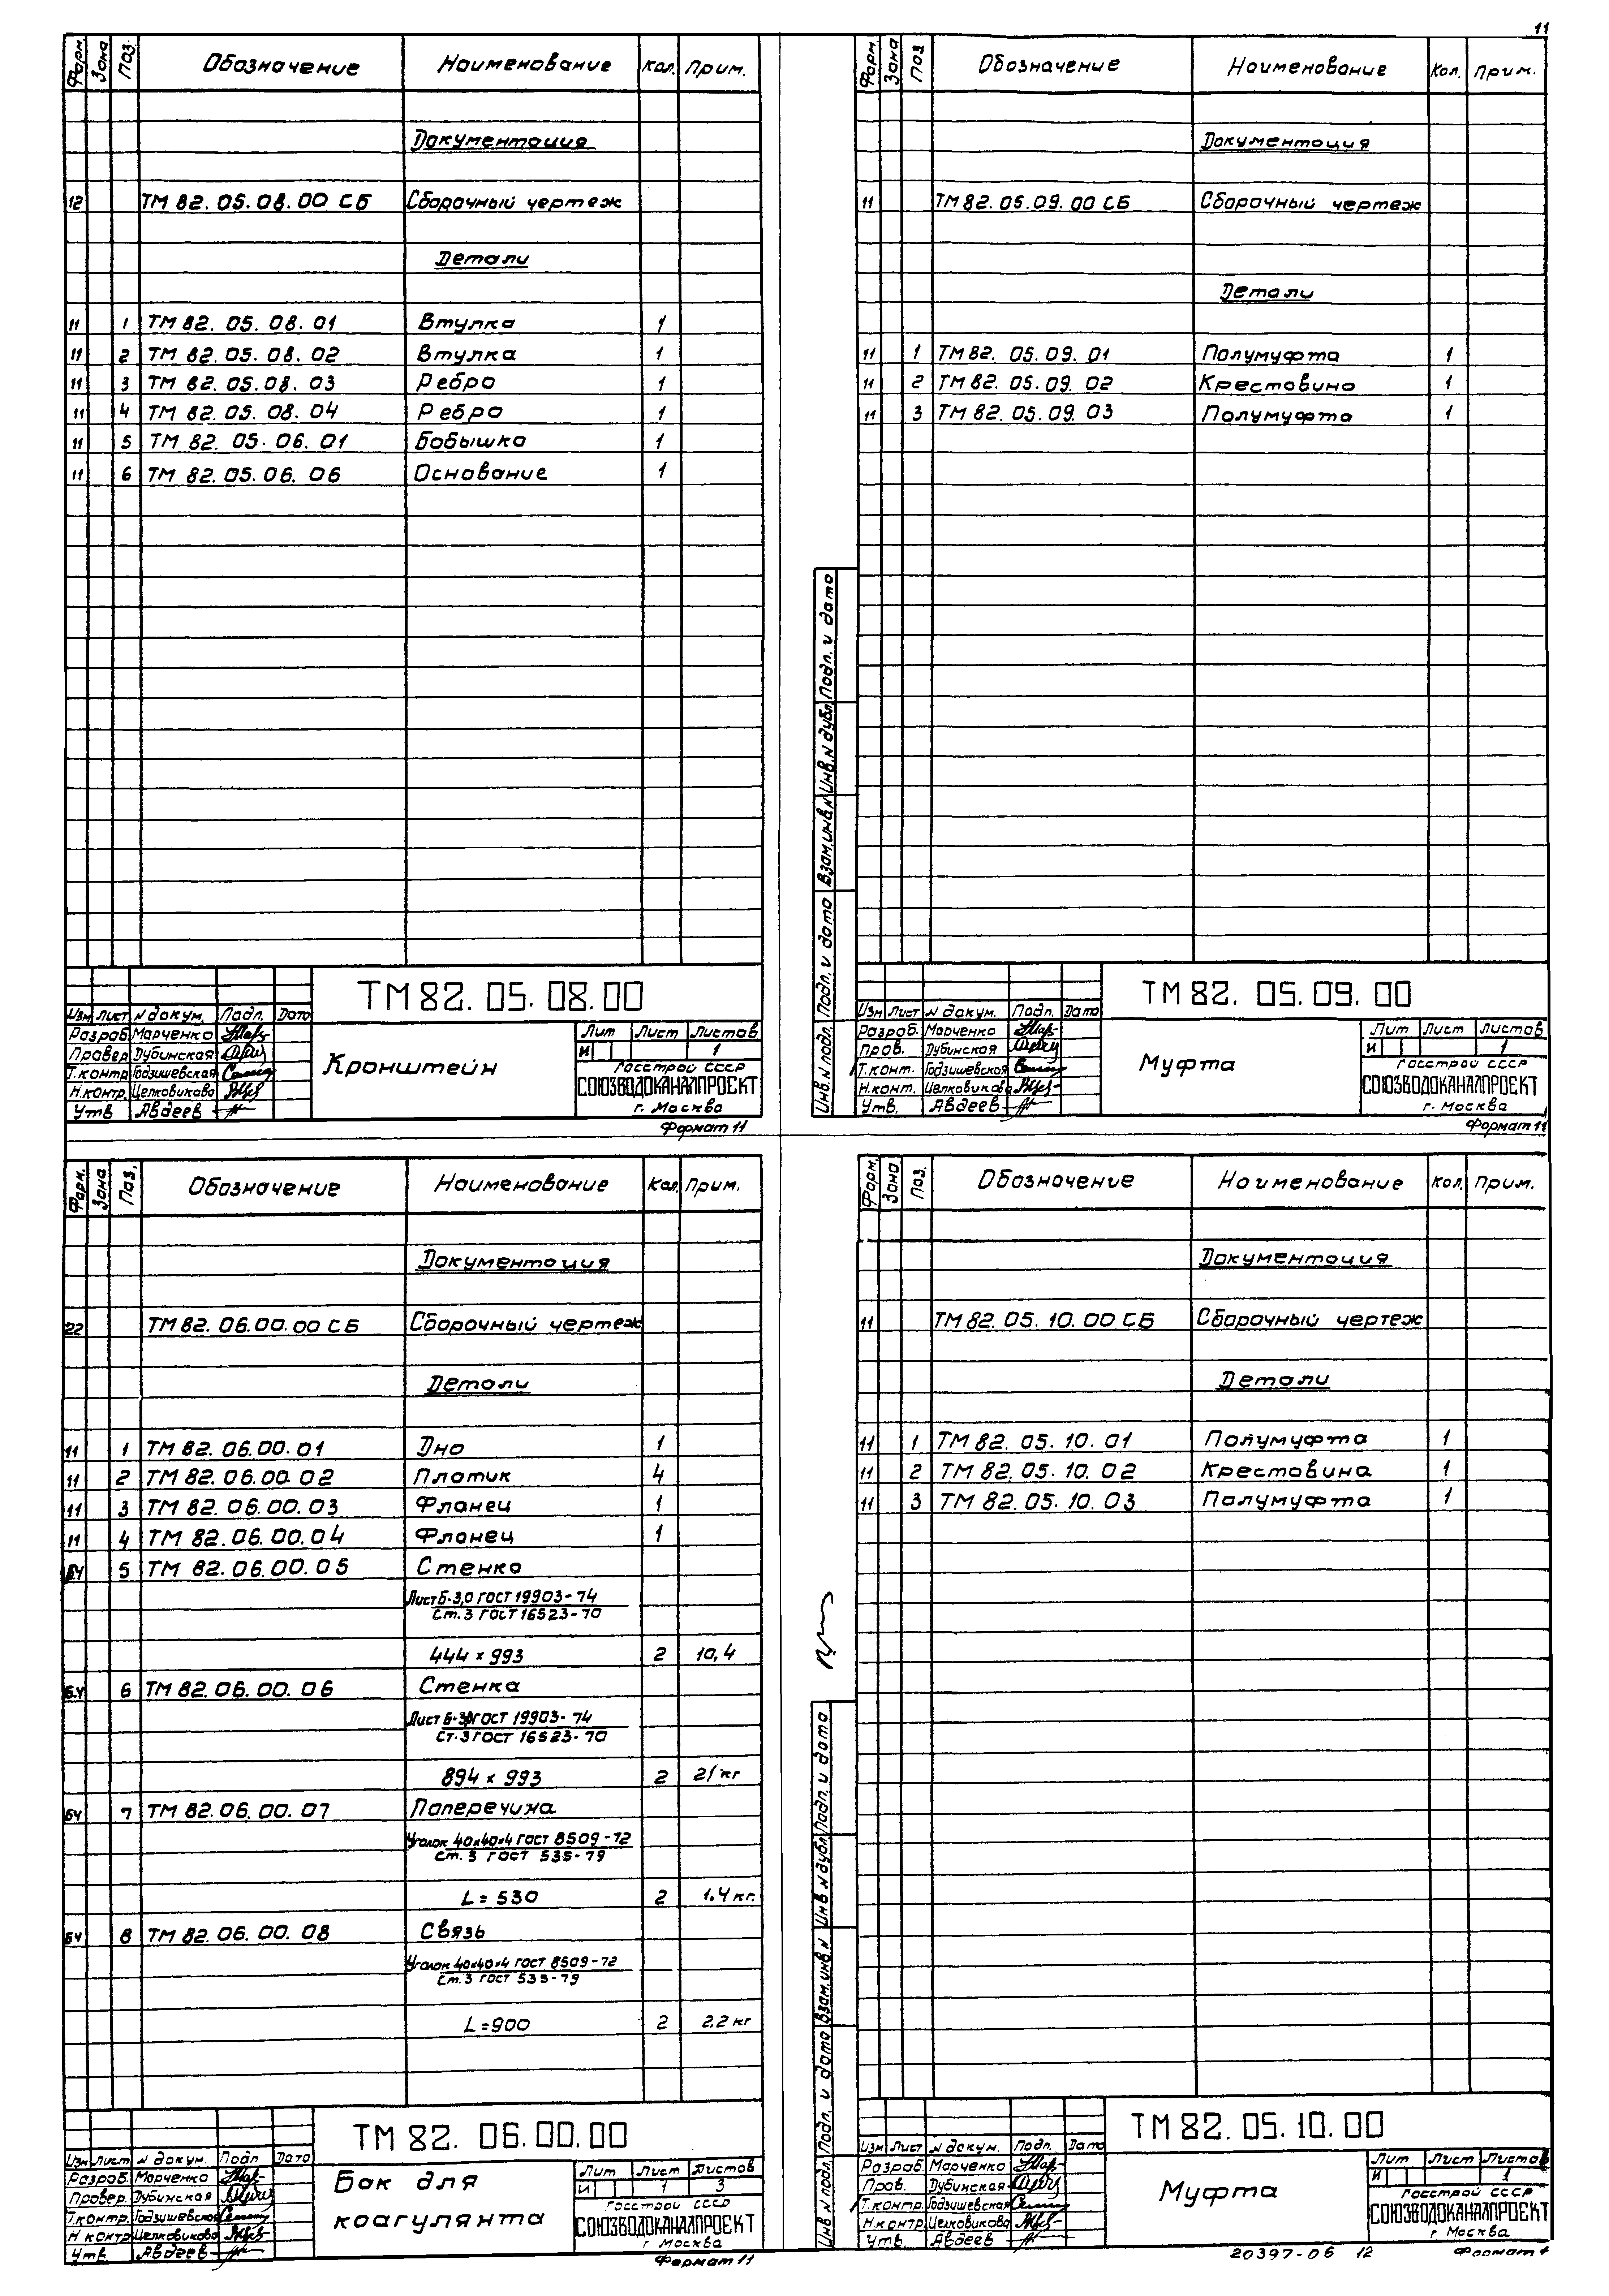 11
Форм. Зона Поз. Обозначение Наименование Кол. Прим.
Документация
12 ТМ 82.05.08.00 СБ Сборочный чертеж
Детали
11 1 ТМ 82.05.08.01 Втулка 1
11 2 ТМ 82.05.08.02 Втулка 1
11 3 ТМ 82.05.08.03 Ребро 1
11 4 ТМ 82.05.08.04 Ребро 1
11 5 ТМ 82.05.06.01 Бобышка 1
11 6 ТМ 82.05.06.06 Основание 1
ТМ 82.05.08.00
Изм Лист N докум. Подп. Дата
Разраб. Марченко
Провер Дубинская
Т.контр Годзишевская
Н.контр. Целковикова
Утв Авдеев
Кронштейн
Лит Лист Листов
И 1
Госстрой СССР
СОЮЗВОДОКАНАЛПРОЕКТ
г. Москва
Формат 11
Форм. Зона Поз Обозначение Наименование Кол. Прим.
Документация
11 ТМ 82.05.09.00 СБ Сборочный чертеж
Детали
11 1 ТМ 82.05.09.01 Полумуфта 1
11 2 ТМ 82.05.09.02 Крестовина 1
11 3 ТМ 82.05.09.03 Полумуфта 1
Инв.N подл. Подп. и дата Взам.инв.N Инв.N дубл. Подп. и дата
ТМ 82.05.09.00
Изм Лист N докум. Подп. Дата
Разраб. Марченко
Пров. Дубинская
Т.конт. Годзишевская
Н.конт. Целковикова
Утв. Авдеев
Муфта
Лит Лист Листов
И 1
Госстрой СССР
СОЮЗВОДОКАНАЛПРОЕКТ
г. Москва
Формат 11
Форм. Зона Поз. Обозначение Наименование Кол. Прим.
Документация
22 ТМ 82.06.00.00 СБ Сборочный чертеж
Детали
11 1 ТМ 82.06.00.01 Дно 1
11 2 ТМ 82.06.00.02 Платик 4
11 3 ТМ 82.06.00.03 Фланец 1
11 4 ТМ 82.06.00.04 Фланец 1
БЧ 5 ТМ 82.06.00.05 Стенка
Лист Б-3,0 ГОСТ 19903-74
Ст.3 ГОСТ 16523-70
444 × 993 2 10,4
БЧ 6 ТМ 82.06.00.06 Стенка
Лист Б-3,0 ГОСТ 19903-74
Ст.3 ГОСТ 16523-70
894 × 993 2 21 кг
БЧ 7 ТМ 82.06.00.07 Поперечина
Уголок 40×40×4 ГОСТ 8509-72
Ст.3 ГОСТ 535-79
L = 530 2 1,4 кг.
БЧ 8 ТМ 82.06.00.08 Связь
Уголок 40×40×4 ГОСТ 8509-72
Ст.3 ГОСТ 535-79
L = 900 2 2.2 кг
ТМ 82.06.00.00
Изм Лист N докум. Подп Дата
Разраб. Марченко
Провер. Дубинская
Т.контр. Годзишевская
Н контр Целковикова
Утв. Авдеев
Бак для
коагулянта
Лит Лист Листов
И 1 3
Госстрой СССР
СОЮЗВОДОКАНАЛПРОЕКТ
г Москва
Формат 11
Форм. Зона Поз. Обозначение Наименование Кол. Прим.
Документация
11 ТМ 82.05.10.00 СБ Сборочный чертеж
Детали
11 1 ТМ 82.05.10.01 Полумуфта 1
11 2 ТМ 82.05.10.02 Крестовина 1
11 3 ТМ 82.05.10.03 Полумуфта 1
Инв N подл. Подп. и дата Взам.инв N Инв N дубл. Подп. и дата
ТМ 82.05.10.00
Изм Лист N докум. Подп. Дата
Разраб. Марченко
Пров. Дубинская
Т.контр. Годзишевская
Н.контр. Целковикова
Утв. Авдеев
Муфта
Лит Лист Листов
И 1
Госстрой СССР
СОЮЗВОДОКАНАЛПРОЕКТ
г Москва
20397-06 12
Формат